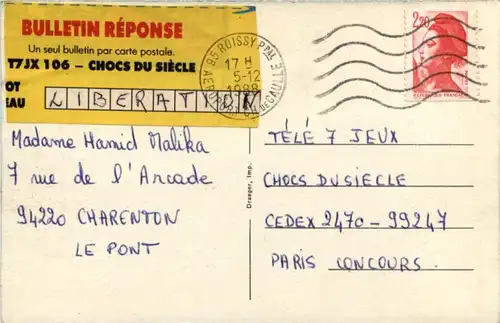 BULLETIN RÉPONSE
Un seul bulletin par carte postale.
T7JX 106 – CHOCS DU SIÈCLE
OT
EAU
LIBERATION
95 ROISSY PPAL
17 H
5-12
1988
AEROPORT CH DE GAULLE
2,20
Madame Hamid Malika
7 rue de l'Arcade
94220 CHARENTON
LE PONT
Draeger, Imp.
TÉLÉ 7 JEUX
CHOCS DU SIECLE
CEDEX 2470-99247
PARIS CONCOURS.